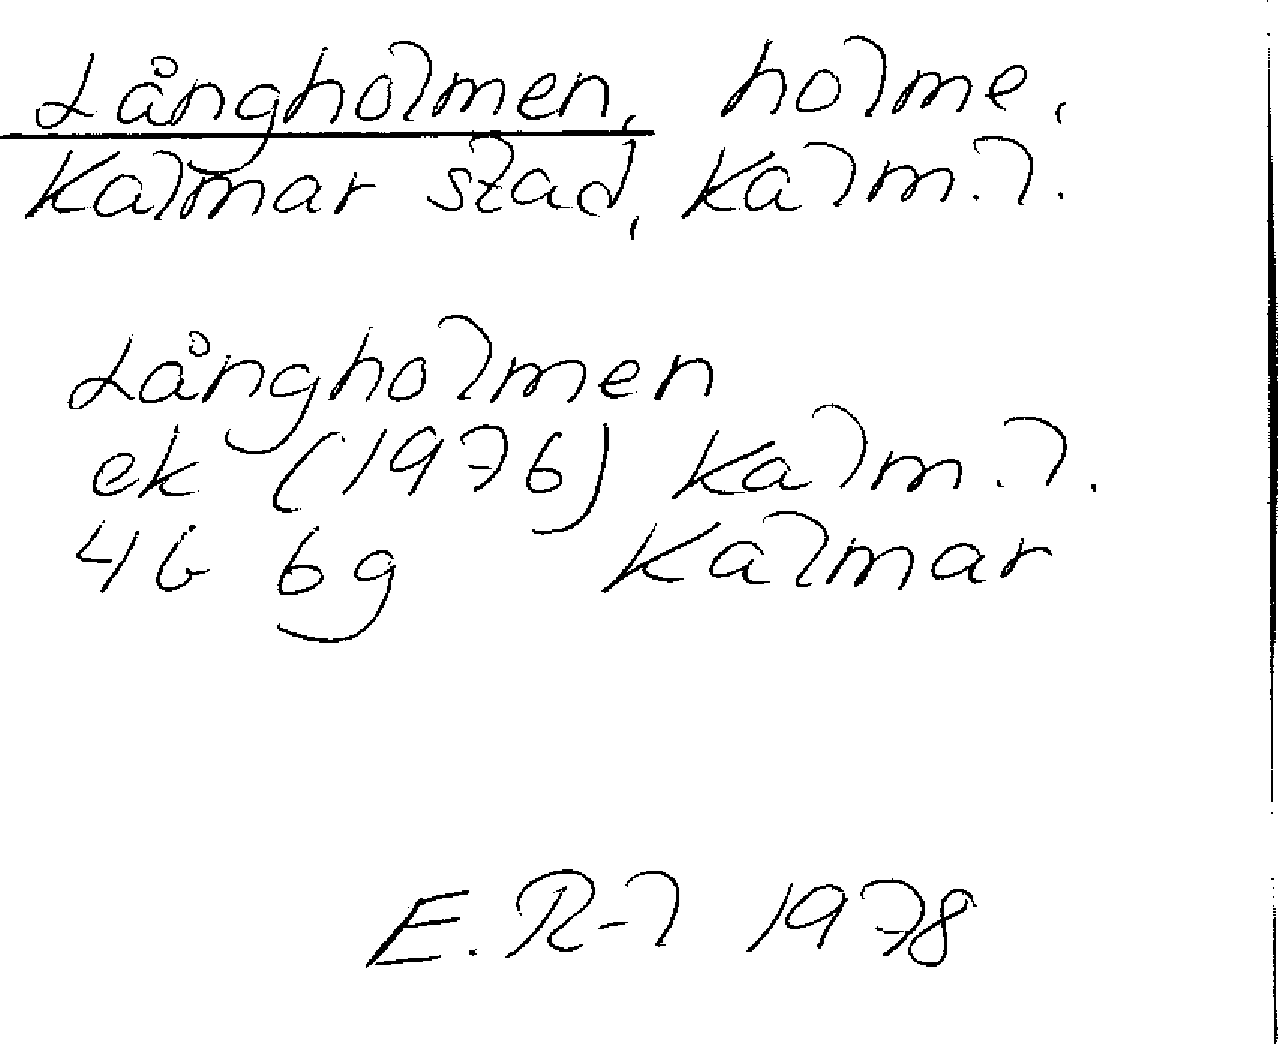 Långholmen, holme,
Kalmar stad, Kalm. l.
Långholmen
ek (1976) Kalm. l.
4G 6g Kalmar
E. R-l 1978